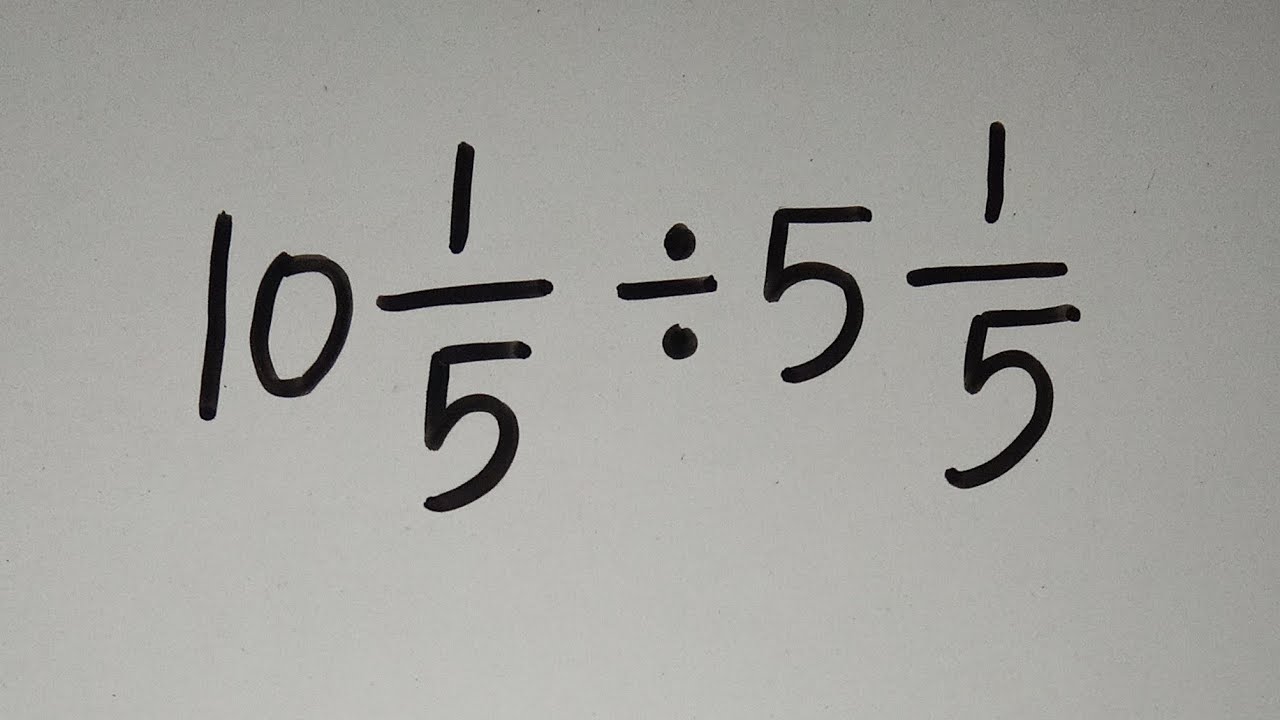 10 1/5 ÷ 5 1/5